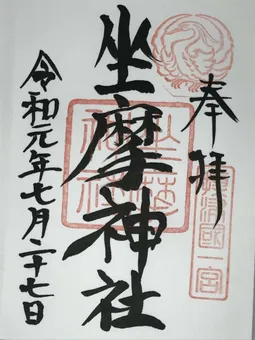 奉拝
攝津國一宮
坐摩神社
令和元年七月二十七日